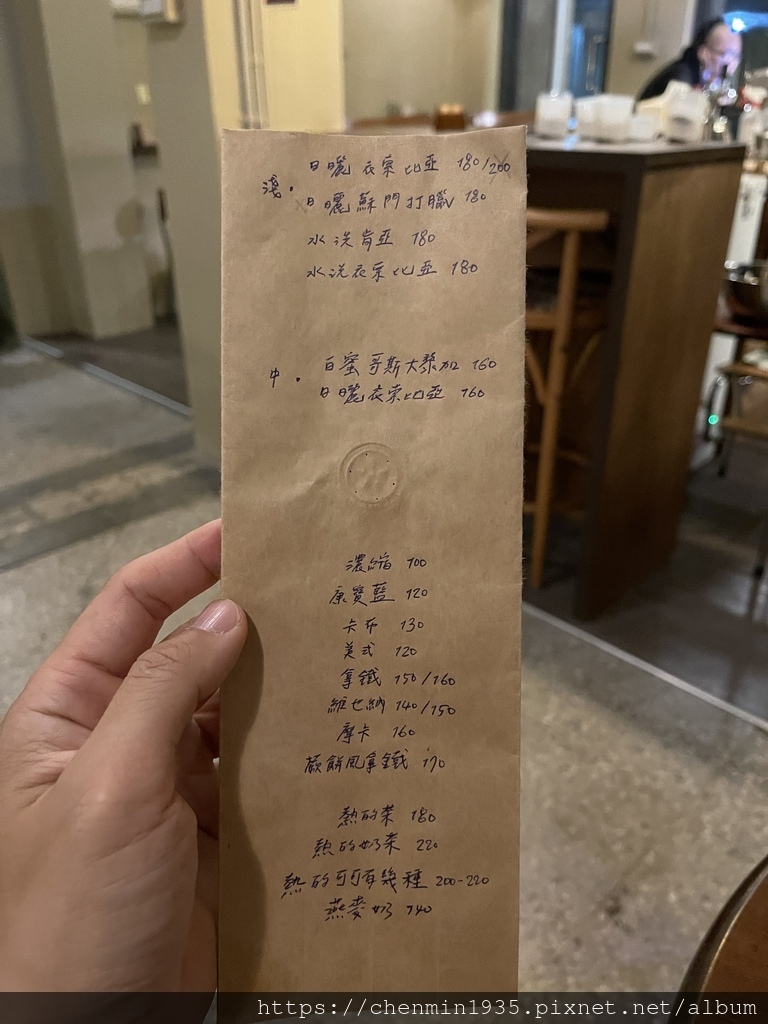 日曬衣索比亞 180/200
淺。 日曬蘇門打臘 180
水洗肯亞 180
水洗衣索比亞 180
中。 白蜜哥斯大黎加 160
日曬衣索比亞 160
濃縮 100
康寶藍 120
卡布 130
美式 120
拿鐵 150/160
維也納 140/150
摩卡 160
蕨餅風拿鐵 170
熱的茶 180
熱的奶茶 220
熱的可可有幾種 200-220
燕麥奶 140
https://chenmin1935.pixnet.net/album